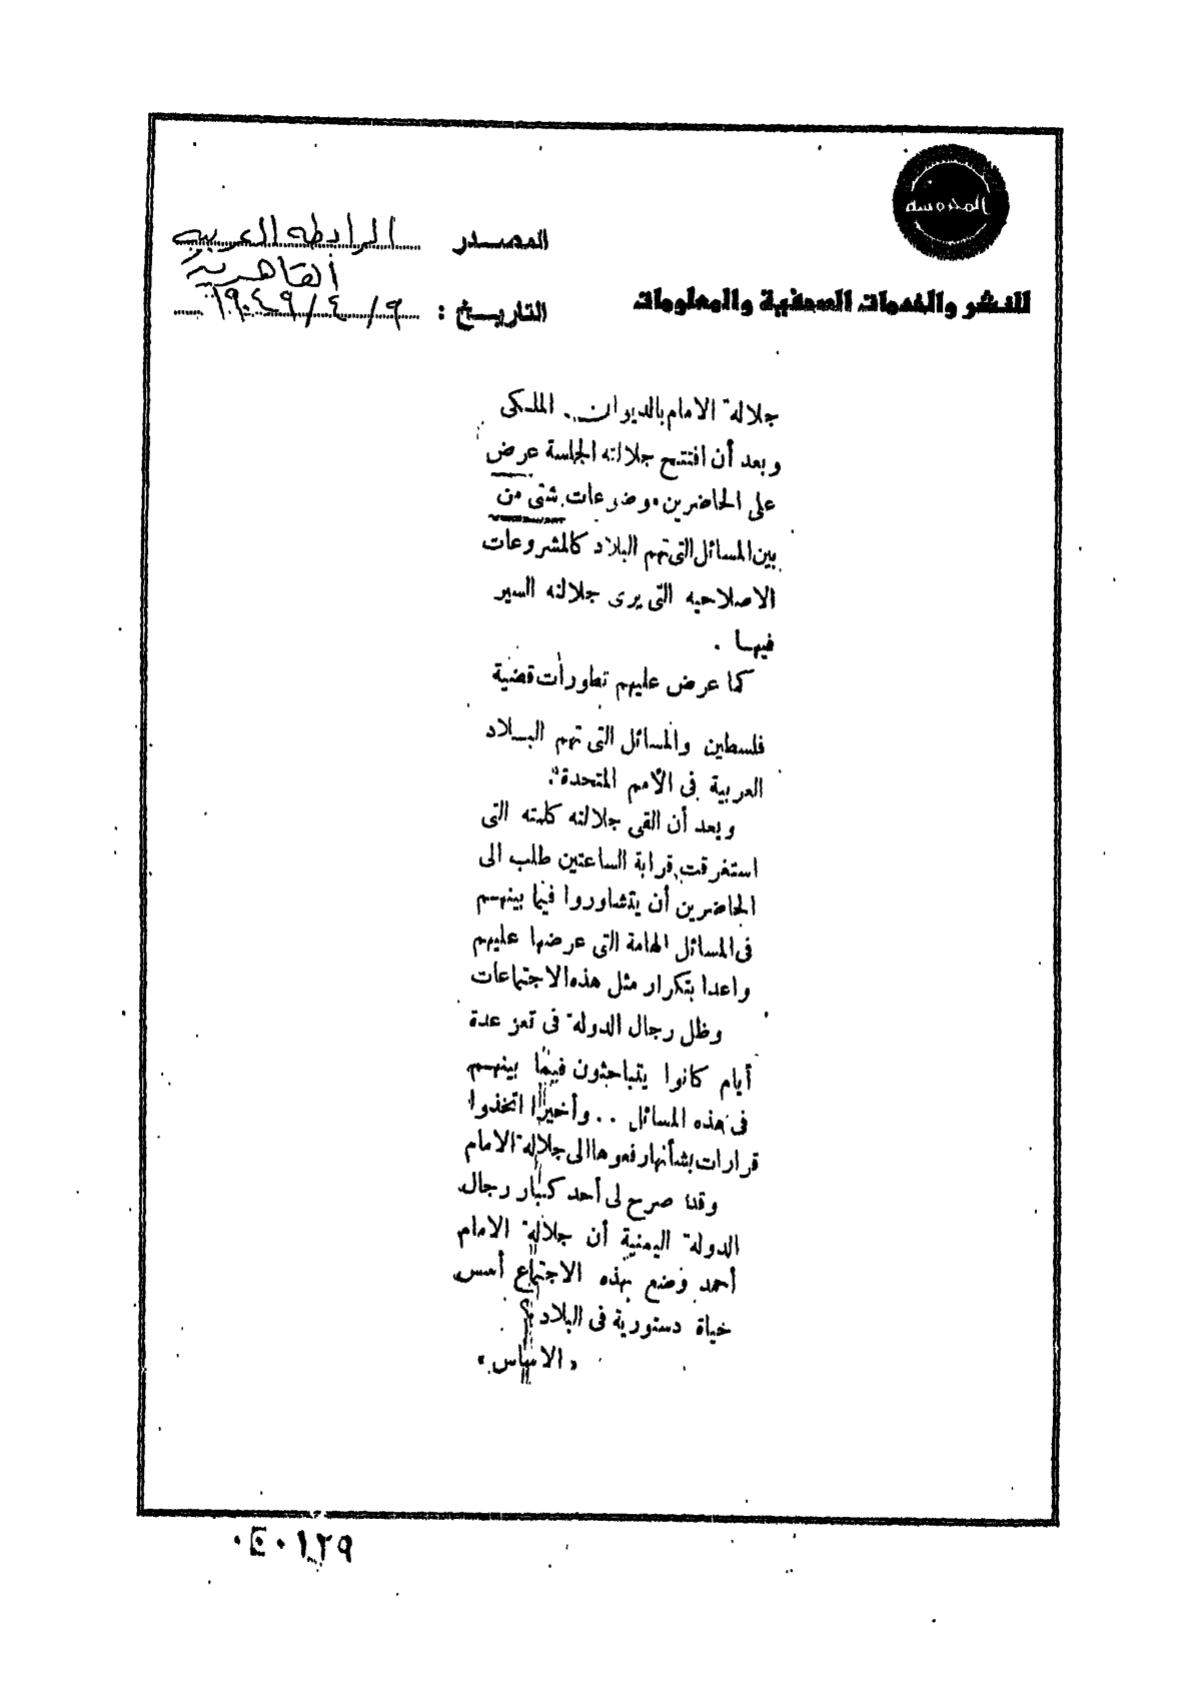 المحروسة
للنشر والخدمات الصحفية والمعلومات
المصدر الرابطه العربيه
القاهرية
التاريخ : ٩/٤/١٩٤٩
جلالة الامام بالديوان .. الملكى
وبعد أن افتتح جلالته الجلسة عرض
على الحاضرين موضوعات شتى من
بين المسائل التى تهم البلاد كالمشروعات
الاصلاحيه التى يرى جلالته السير
فيها .
كما عرض عليهم تطورات قضية
فلسطين والمسائل التى تهم البلاد
العربية فى الأمم المتحدة .
وبعد أن القى جلالته كلمته التى
استغرقت قرابة الساعتين طلب الى
الحاضرين أن يتشاوروا فيما بينهم
فى المسائل الهامة التى عرضها عليهم
واعدا بتكرار مثل هذه الاجتماعات
وظل رجال الدولة فى تعز عدة
أيام كانوا يتباحثون فيما بينهم
فى هذه المسائل .. وأخيرا اتخذوا
قرارات بشأنها رفعوها الى جلالة الامام
وقد صرح لى أحد كبار رجال
الدولة اليمنية أن جلالة الامام
أحمد وضع بهذه الاجتماع أسس
حياة دستورية فى البلاد
« الاساس »